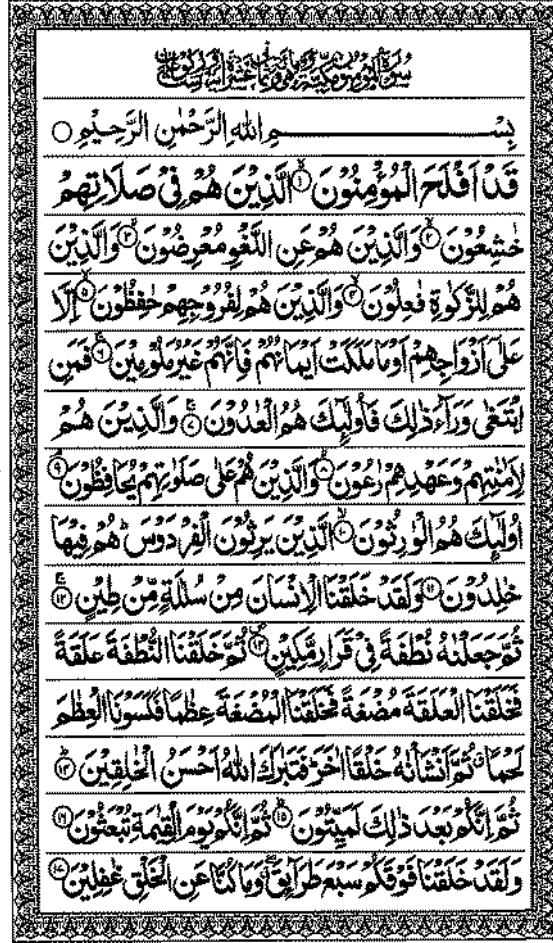 بِسْمِ اللّٰهِ الرَّحْمٰنِ الرَّحِيْمِ ○
قَدْ اَفْلَحَ الْمُؤْمِنُوْنَ ۙ﴿۱﴾ الَّذِيْنَ هُمْ فِيْ صَلَاتِهِمْ
خٰشِعُوْنَ ۙ﴿۲﴾ وَالَّذِيْنَ هُمْ عَنِ اللَّغْوِ مُعْرِضُوْنَ ۙ﴿۳﴾ وَالَّذِيْنَ
هُمْ لِلزَّكٰوةِ فٰعِلُوْنَ ۙ﴿۴﴾ وَالَّذِيْنَ هُمْ لِفُرُوْجِهِمْ حٰفِظُوْنَ ۙ﴿۵﴾ اِلَّا
عَلٰٓى اَزْوَاجِهِمْ اَوْ مَا مَلَكَتْ اَيْمَانُهُمْ فَاِنَّهُمْ غَيْرُ مَلُوْمِيْنَ ۚ﴿۶﴾ فَمَنِ
ابْتَغٰى وَرَآءَ ذٰلِكَ فَاُولٰٓئِكَ هُمُ الْعٰدُوْنَ ۚ﴿۷﴾ وَالَّذِيْنَ هُمْ
لِاَمٰنٰتِهِمْ وَعَهْدِهِمْ رٰعُوْنَ ۙ﴿۸﴾ وَالَّذِيْنَ هُمْ عَلٰى صَلَوٰتِهِمْ يُحَافِظُوْنَ ۘ﴿۹﴾
اُولٰٓئِكَ هُمُ الْوٰرِثُوْنَ ۙ﴿۱۰﴾ الَّذِيْنَ يَرِثُوْنَ الْفِرْدَوْسَ ؕ هُمْ فِيْهَا
خٰلِدُوْنَ ﴿۱۱﴾ وَلَقَدْ خَلَقْنَا الْاِنْسَانَ مِنْ سُلٰلَةٍ مِّنْ طِيْنٍ ۚ﴿۱۲﴾
ثُمَّ جَعَلْنٰهُ نُطْفَةً فِيْ قَرَارٍ مَّكِيْنٍ ۪﴿۱۳﴾ ثُمَّ خَلَقْنَا النُّطْفَةَ عَلَقَةً
فَخَلَقْنَا الْعَلَقَةَ مُضْغَةً فَخَلَقْنَا الْمُضْغَةَ عِظٰمًا فَكَسَوْنَا الْعِظٰمَ
لَحْمًا ۗ ثُمَّ اَنْشَاْنٰهُ خَلْقًا اٰخَرَ ؕ فَتَبٰرَكَ اللّٰهُ اَحْسَنُ الْخٰلِقِيْنَ ؕ﴿۱۴﴾
ثُمَّ اِنَّكُمْ بَعْدَ ذٰلِكَ لَمَيِّتُوْنَ ؕ﴿۱۵﴾ ثُمَّ اِنَّكُمْ يَوْمَ الْقِيٰمَةِ تُبْعَثُوْنَ ﴿۱۶﴾
وَلَقَدْ خَلَقْنَا فَوْقَكُمْ سَبْعَ طَرَآئِقَ ۖ وَمَا كُنَّا عَنِ الْخَلْقِ غٰفِلِيْنَ ﴿۱۷﴾